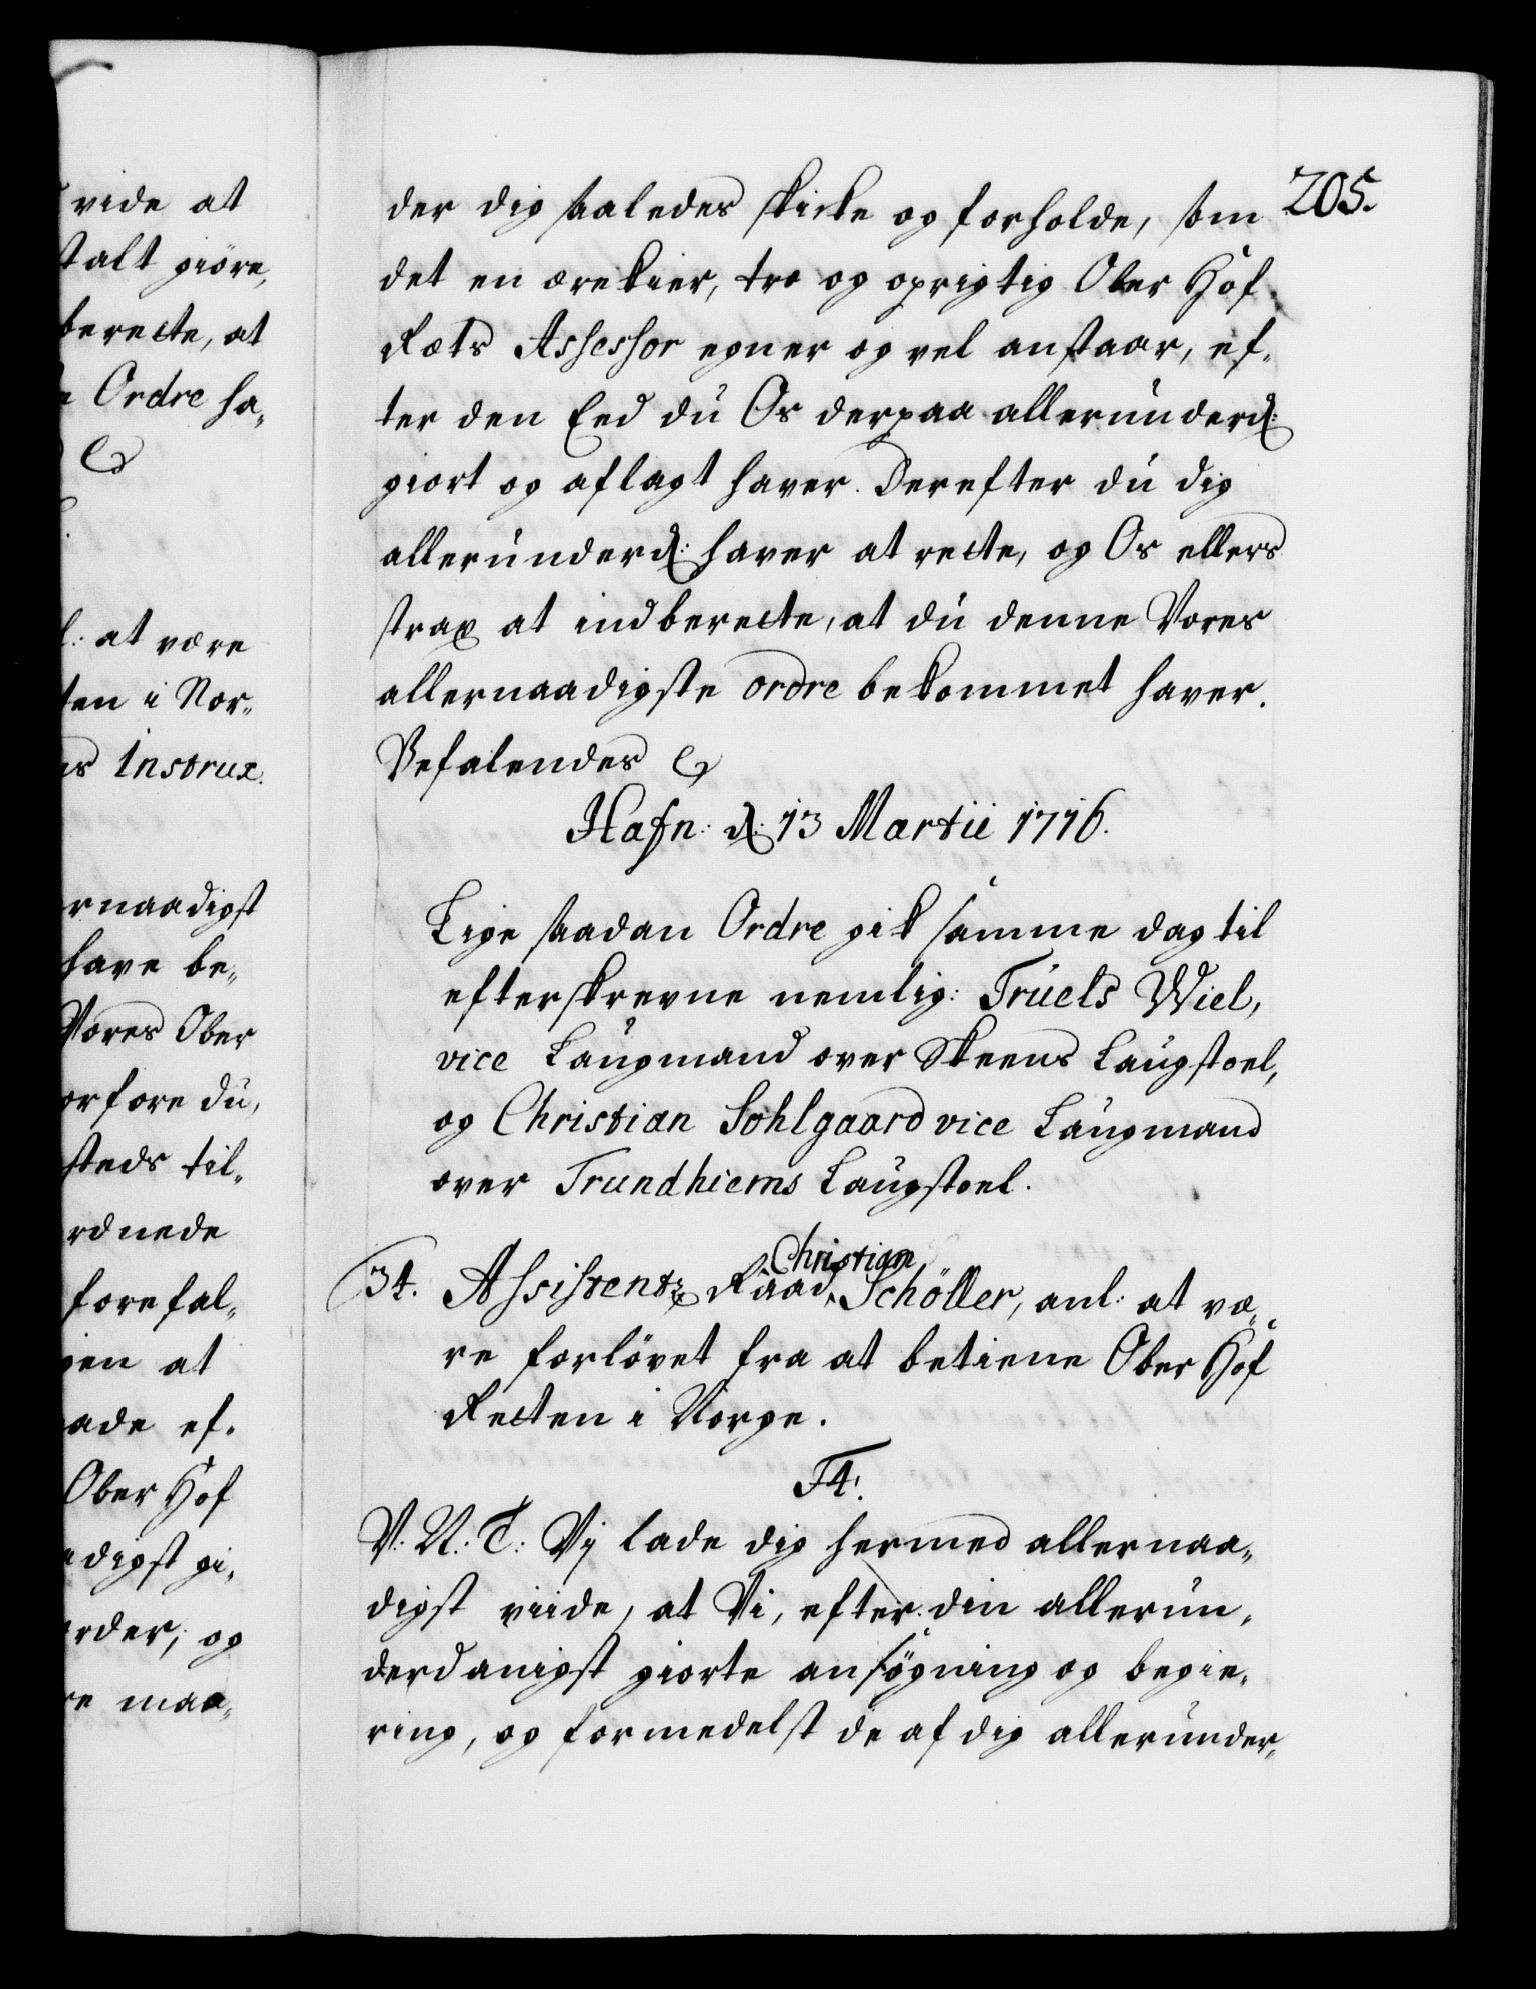 vide at
stalt giöre,
berette, at
Ordre ha„
at være
ten i Nor„
Instrux.
rnaadigst
have be„
Vores Ober
orfore du,
steds til„
rdnede
forefal„
gen at
ade ef„
Ober Hof
adigst gi„
rder, og
re maa„
205.
der dig saaledes skicke og forholde, som
det en ærekier, tro og oprigtig Ober Hof
Rets Assessor egner og vel anstaar, ef„
ter den Eed du Os derpaa allerunderd:
giort og aflagt haver. Derefter du dig
allerunderd: haver at rette, og Os ellers
strax at indberette, at du denne Vores
allernaadigste ordre bekommet haver.
Befalendes
Hafn: d: 13 Martii 1716.
Lige saadan Ordre gik samme dag til
efterskrevne nemlig: Truels Wiel,
vice Laugmand over Skeens Laugstoel,
og Christian Sohlgaard vice Laugmand
over Trundhiems Laugstoel.
Christian
34. Assistentz Raad Schöller, anl: at væ„
re forlövet fra at betiene Ober Hof
Retten i Norge.
F4.
V: U: T: Vj lade dig hermed allernaa„
digst viide, at Vi, efter din allerun„
derdanigst giorte ansögning og begie„
ring, og formedelst de af dig allerunder„